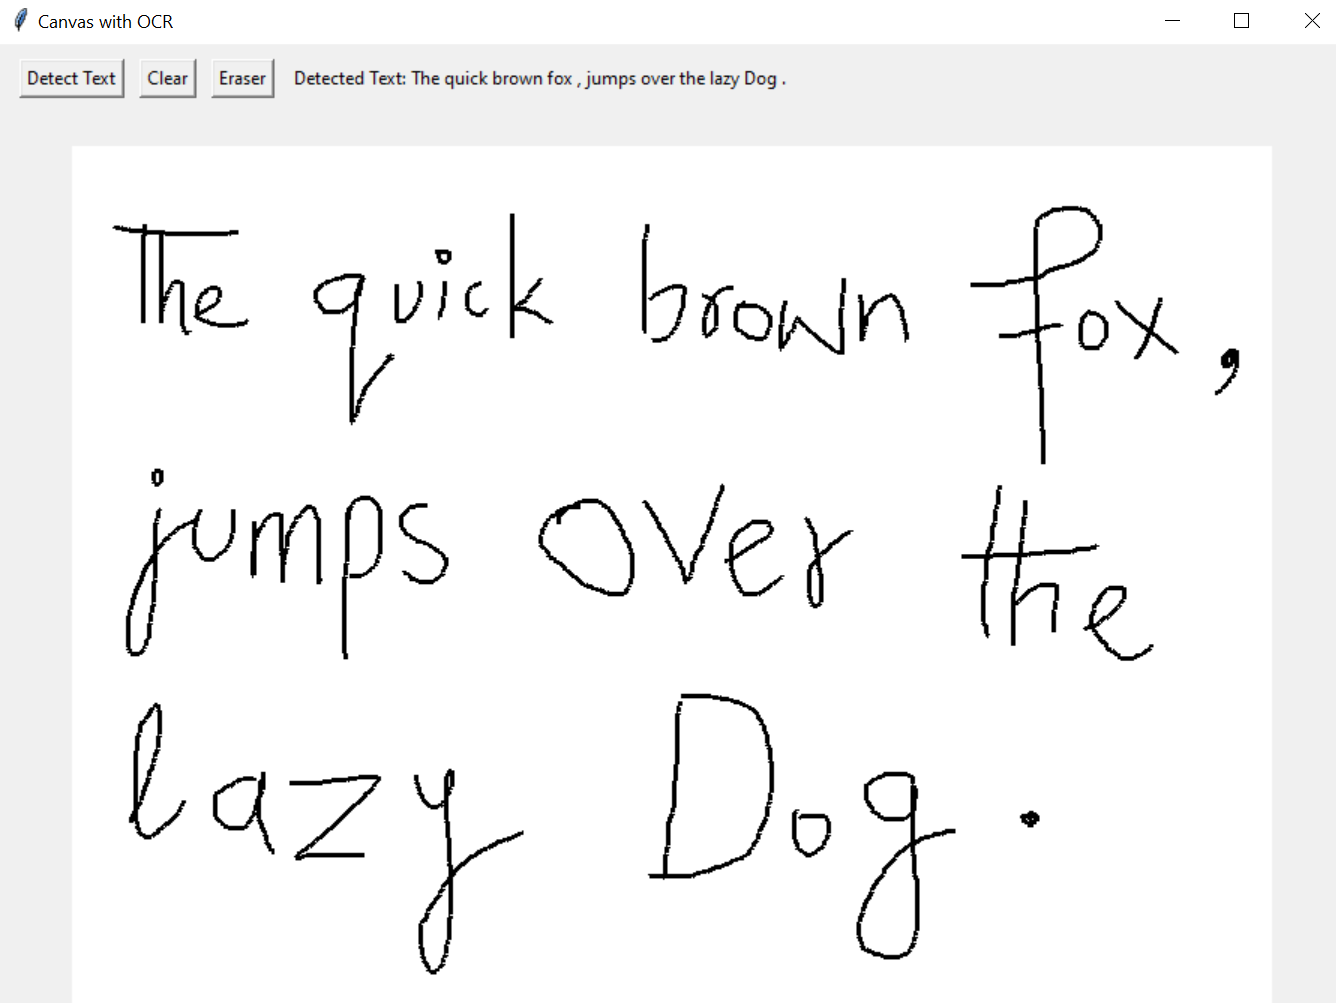 Canvas with OCR
Detect Text Clear Eraser Detected Text: The quick brown fox , jumps over the lazy Dog .
The quick brown fox,
jumps over the
lazy Dog .